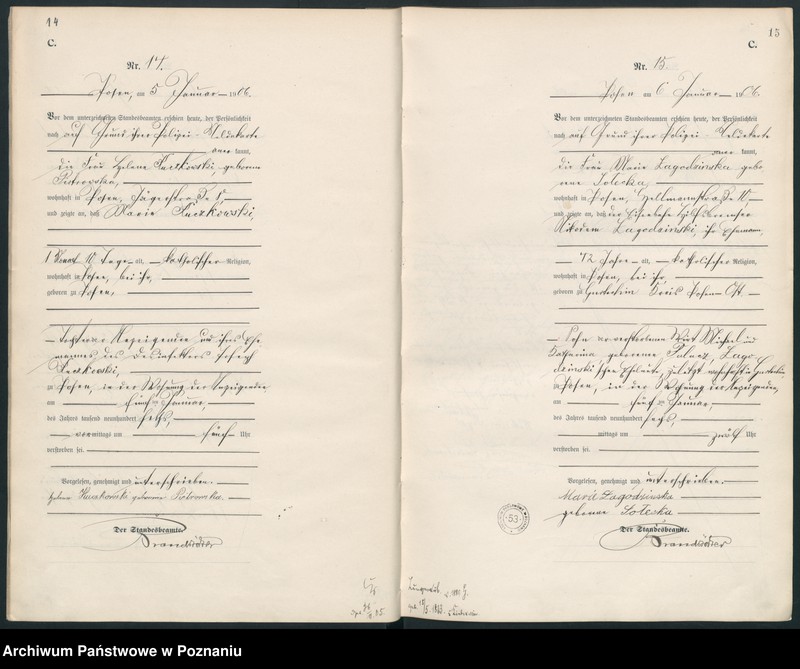 14
C.
Nr. 14.
Posen, am 5 Januar 1906.
Vor dem unterzeichneten Standesbeamten erschien heute, der Persönlichkeit
nach auf Grund ihrer Polizei-Meldekarte
kannt,
die Frau Helene Kuczkowski, geborene
Piotrowska,
wohnhaft in Posen,
und zeigte an, daß Marie Kuczkowski,
1 Monat 10 Tage alt, katholischer Religion,
wohnhaft in Posen, bei ihr,
geboren zu Posen,
Tochter der Anzeigenden und ihres Ehe
mannes des Joseph
Kuczkowski,
zu Posen, in der Wohnung der Anzeigenden
am fünften Januar,
des Jahres tausend neunhundert sechs,
vormittags um fünf Uhr
verstorben sei.
Vorgelesen, genehmigt und unterschrieben.
Helena Kuczkowska geborene Piotrowska.
Der Standesbeamte.
15
C.
Nr. 15
Posen am 6 Januar 1906.
Vor dem unterzeichneten Standesbeamten erschien heute, der Persönlichkeit
nach auf Grund ihrer Polizei-Meldekarte
kannt,
die Frau Marie Lagodzinska gebo
rene Solecka,
wohnhaft in Posen,
und zeigte an, daß der Eisenbahn Hilfsbremser
Nikodem Lagodzinski, ihr Ehemann,
42 Jahre alt, katholischer Religion,
wohnhaft in Posen, bei ihr
geboren zu Kreis Posen Ost
Sohn der verstorbenen Wirt Michael und
Katharina geborene Lago
dzinski'schen Eheleute, zuletzt wohnhaft in
zu Posen, in der Wohnung der Anzeigenden,
am fünften Januar,
des Jahres tausend neunhundert sechs,
mittags um zwölf Uhr
verstorben sei.
Vorgelesen, genehmigt und unterschrieben.
Maria Łagodzinska
geborene Solecka
Der Standesbeamte.
53
Archiwum Państwowe w Poznaniu